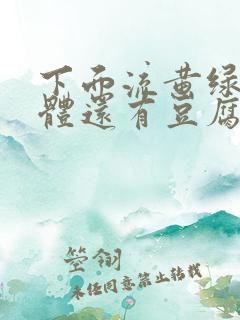 下面流黄绿
體還有豆腐
箜翎
未经同意禁止转载